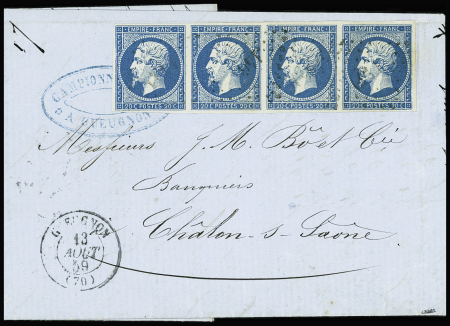 EMPIRE FRANC. EMPIRE FRANC. EMPIRE FRANC. EMPIRE FRANC.
20 C. POSTES 20 C. 20 C. POSTES 20 C. 20 C. POSTES 20 C. 20 C. POSTES 20 C.
A GUEUGNON
Messieurs J. M. Bô et Cie
Banquiers
Châlon-s-Saône
GUEUGNON
13
AOUT
59
(70)